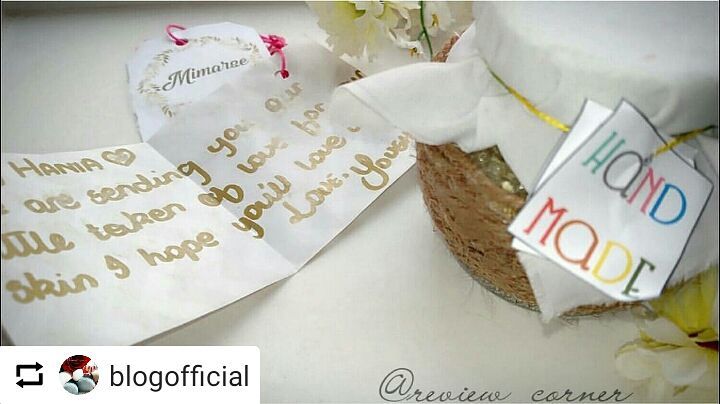 Mimarae
HANIA
are sending you our
ttle token of love for
skin I hope you'll love
Love,
HAND
MADE
blogofficial
@review corner